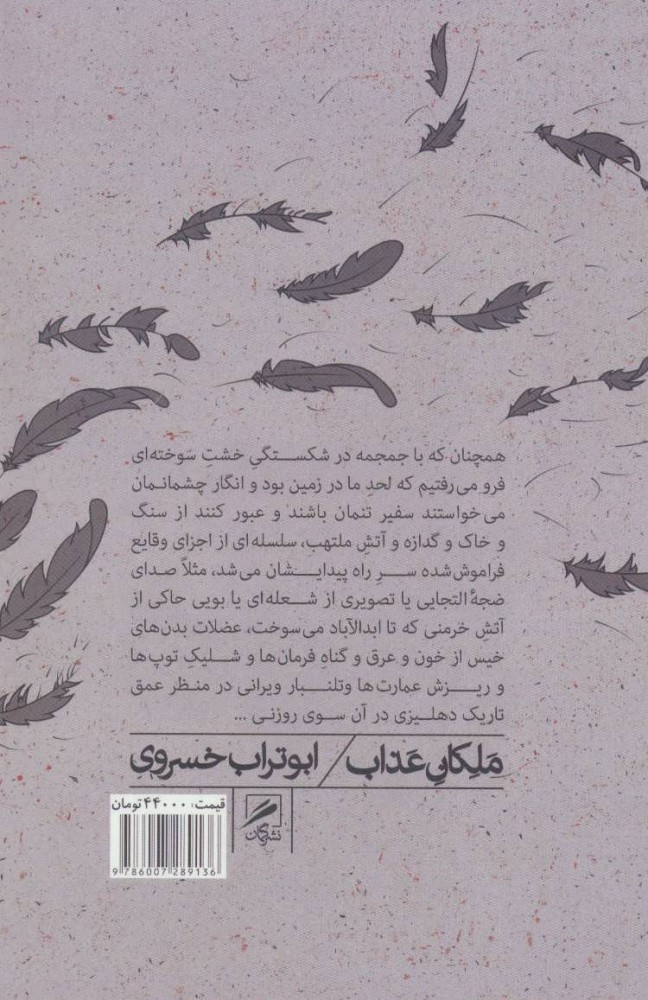 همچنان که با جمجمه در شکستگیِ خشتِ سَوخته‌ای
فرو می‌رفتیم که لحدِ ما در زمین بود و انگار چشمانمان
می‌خواستند سفیر تنمان باشند و عبور کنند از سنگ
و خاک و گدازه و آتشِ ملتهب، سلسله‌ای از اجزای وقایع
فراموش‌شده سرِ راه پیدایشان می‌شد، مثلاً صدای
ضجهٔ التجایی یا تصویری از شعله‌ای یا بویی حاکی از
آتشِ خرمنی که تا ابدالآباد می‌سوخت، عضلات بدن‌های
خیس از خون و عرق و گناهِ فرمان‌ها و شلیکِ توپ‌ها
و ریزش عمارت‌ها وتلنبار ویرانی در منظر عمق
تاریک دهلیزی در آن سوی روزنی ...
مَلِکانِ عَذاب / ابوتراب خسروی
نشرگمان
قیمت: ۴۴۰۰۰ تومان
9 786007 289136